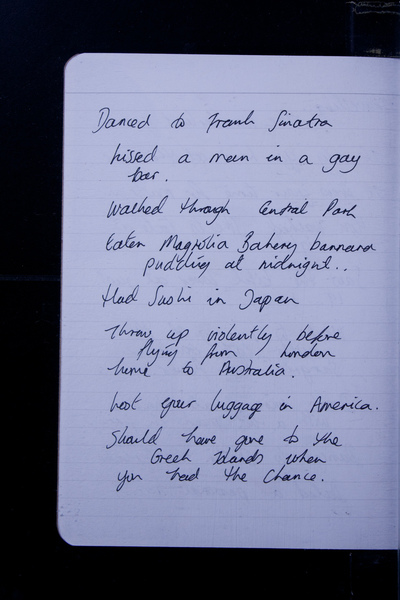 Danced to Frank Sinatra
kissed a man in a gay
bar.
Walked through Central Park
Eaten Magnolia Bakery bannana
pudding at midnight..
Had Sushi in Japan
Throw up violently before
flying from London
home to Australia.
Lost your luggage in America.
Should have gone to the
Greek Islands when
you had the Chance.